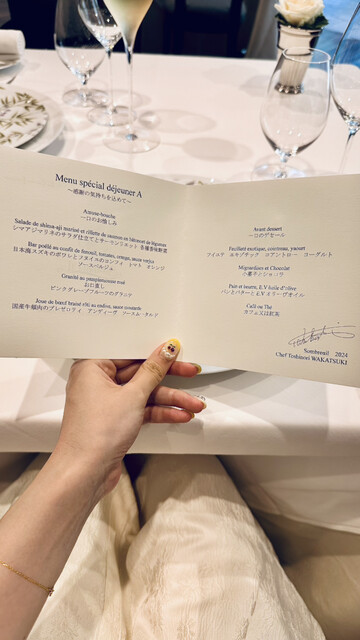 Menu spécial déjeuner A
〜感謝の気持ちを込めて〜
Amuse-bouche
一口のお愉しみ
Salade de shima-aji mariné et rillette de saumon en bâtonnet de légumes
シマアジマリネのサラダ仕立てとサーモンリエット
Bar poêlé au confit de fenouil, tomates, orange, sauce verjus
日本海スズキのポワレとフヌイユのコンフィ トマト オレンジ
ソースベルジュ
Granité au pamplemousse rosé
お口直し
ピンクグレープフルーツのグラニテ
Joue de bœuf braisé endive, sauce moutarde
国産牛頬肉のブレゼ アンディーヴ
Avant dessert
一口のデセール
Feuilleté exotique, cointreau, yaourt
フイユテ エキゾチック コアントロー ヨーグルト
Mignardises et Chocolat
小菓子とショコラ
Pain et beurre, E.V huile d'olive
パンとバターとE.Vオリーブオイル
Café ou Thé
カフェ又は紅茶
Sombreuil 2024
Chef Toshinori WAKATSUKI